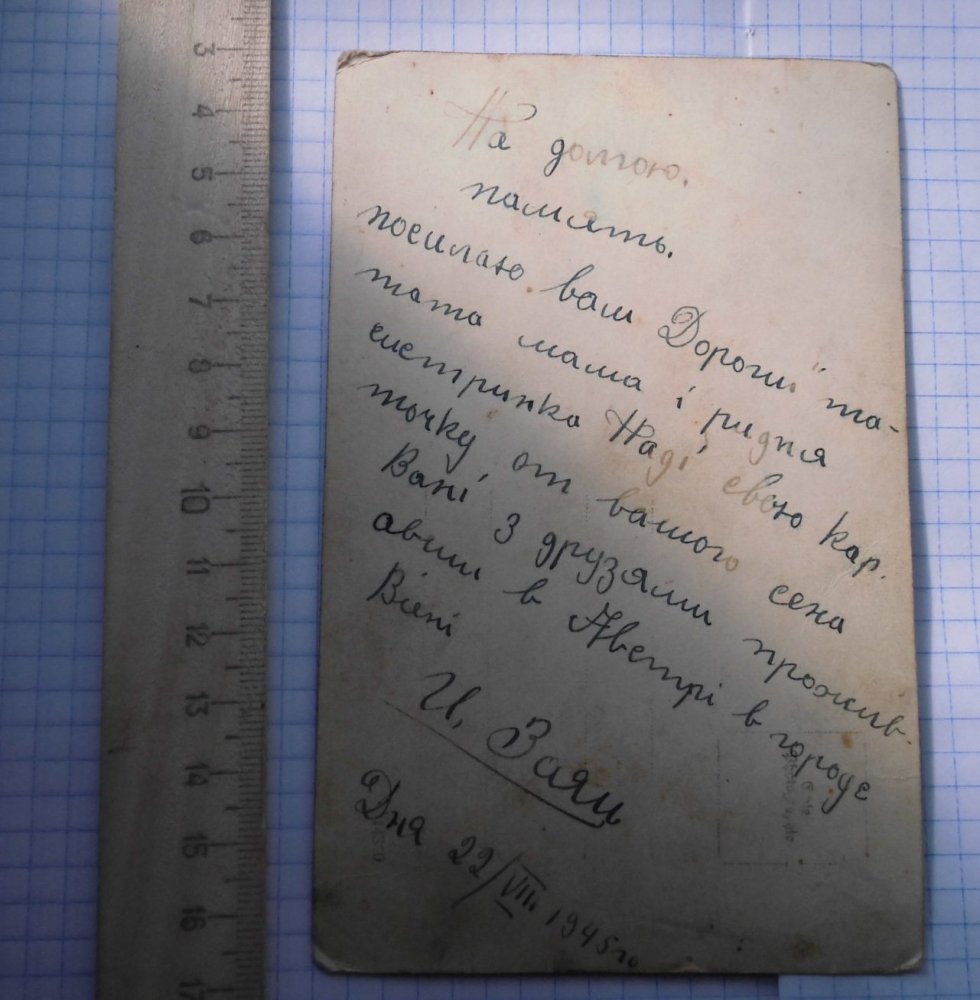 3
4
5
6
7
8
9
10
11
12
13
14
15
16
17
На долгою.
память.
посилаю ваш Дороги та-
тата мама і ридня
систричка Наді свою кар.
точку от вашого сена
Вані з друзями прожив-
авши в Австрі в городе
Віені
И. Заяц
Дня 22/VIII 1945 го